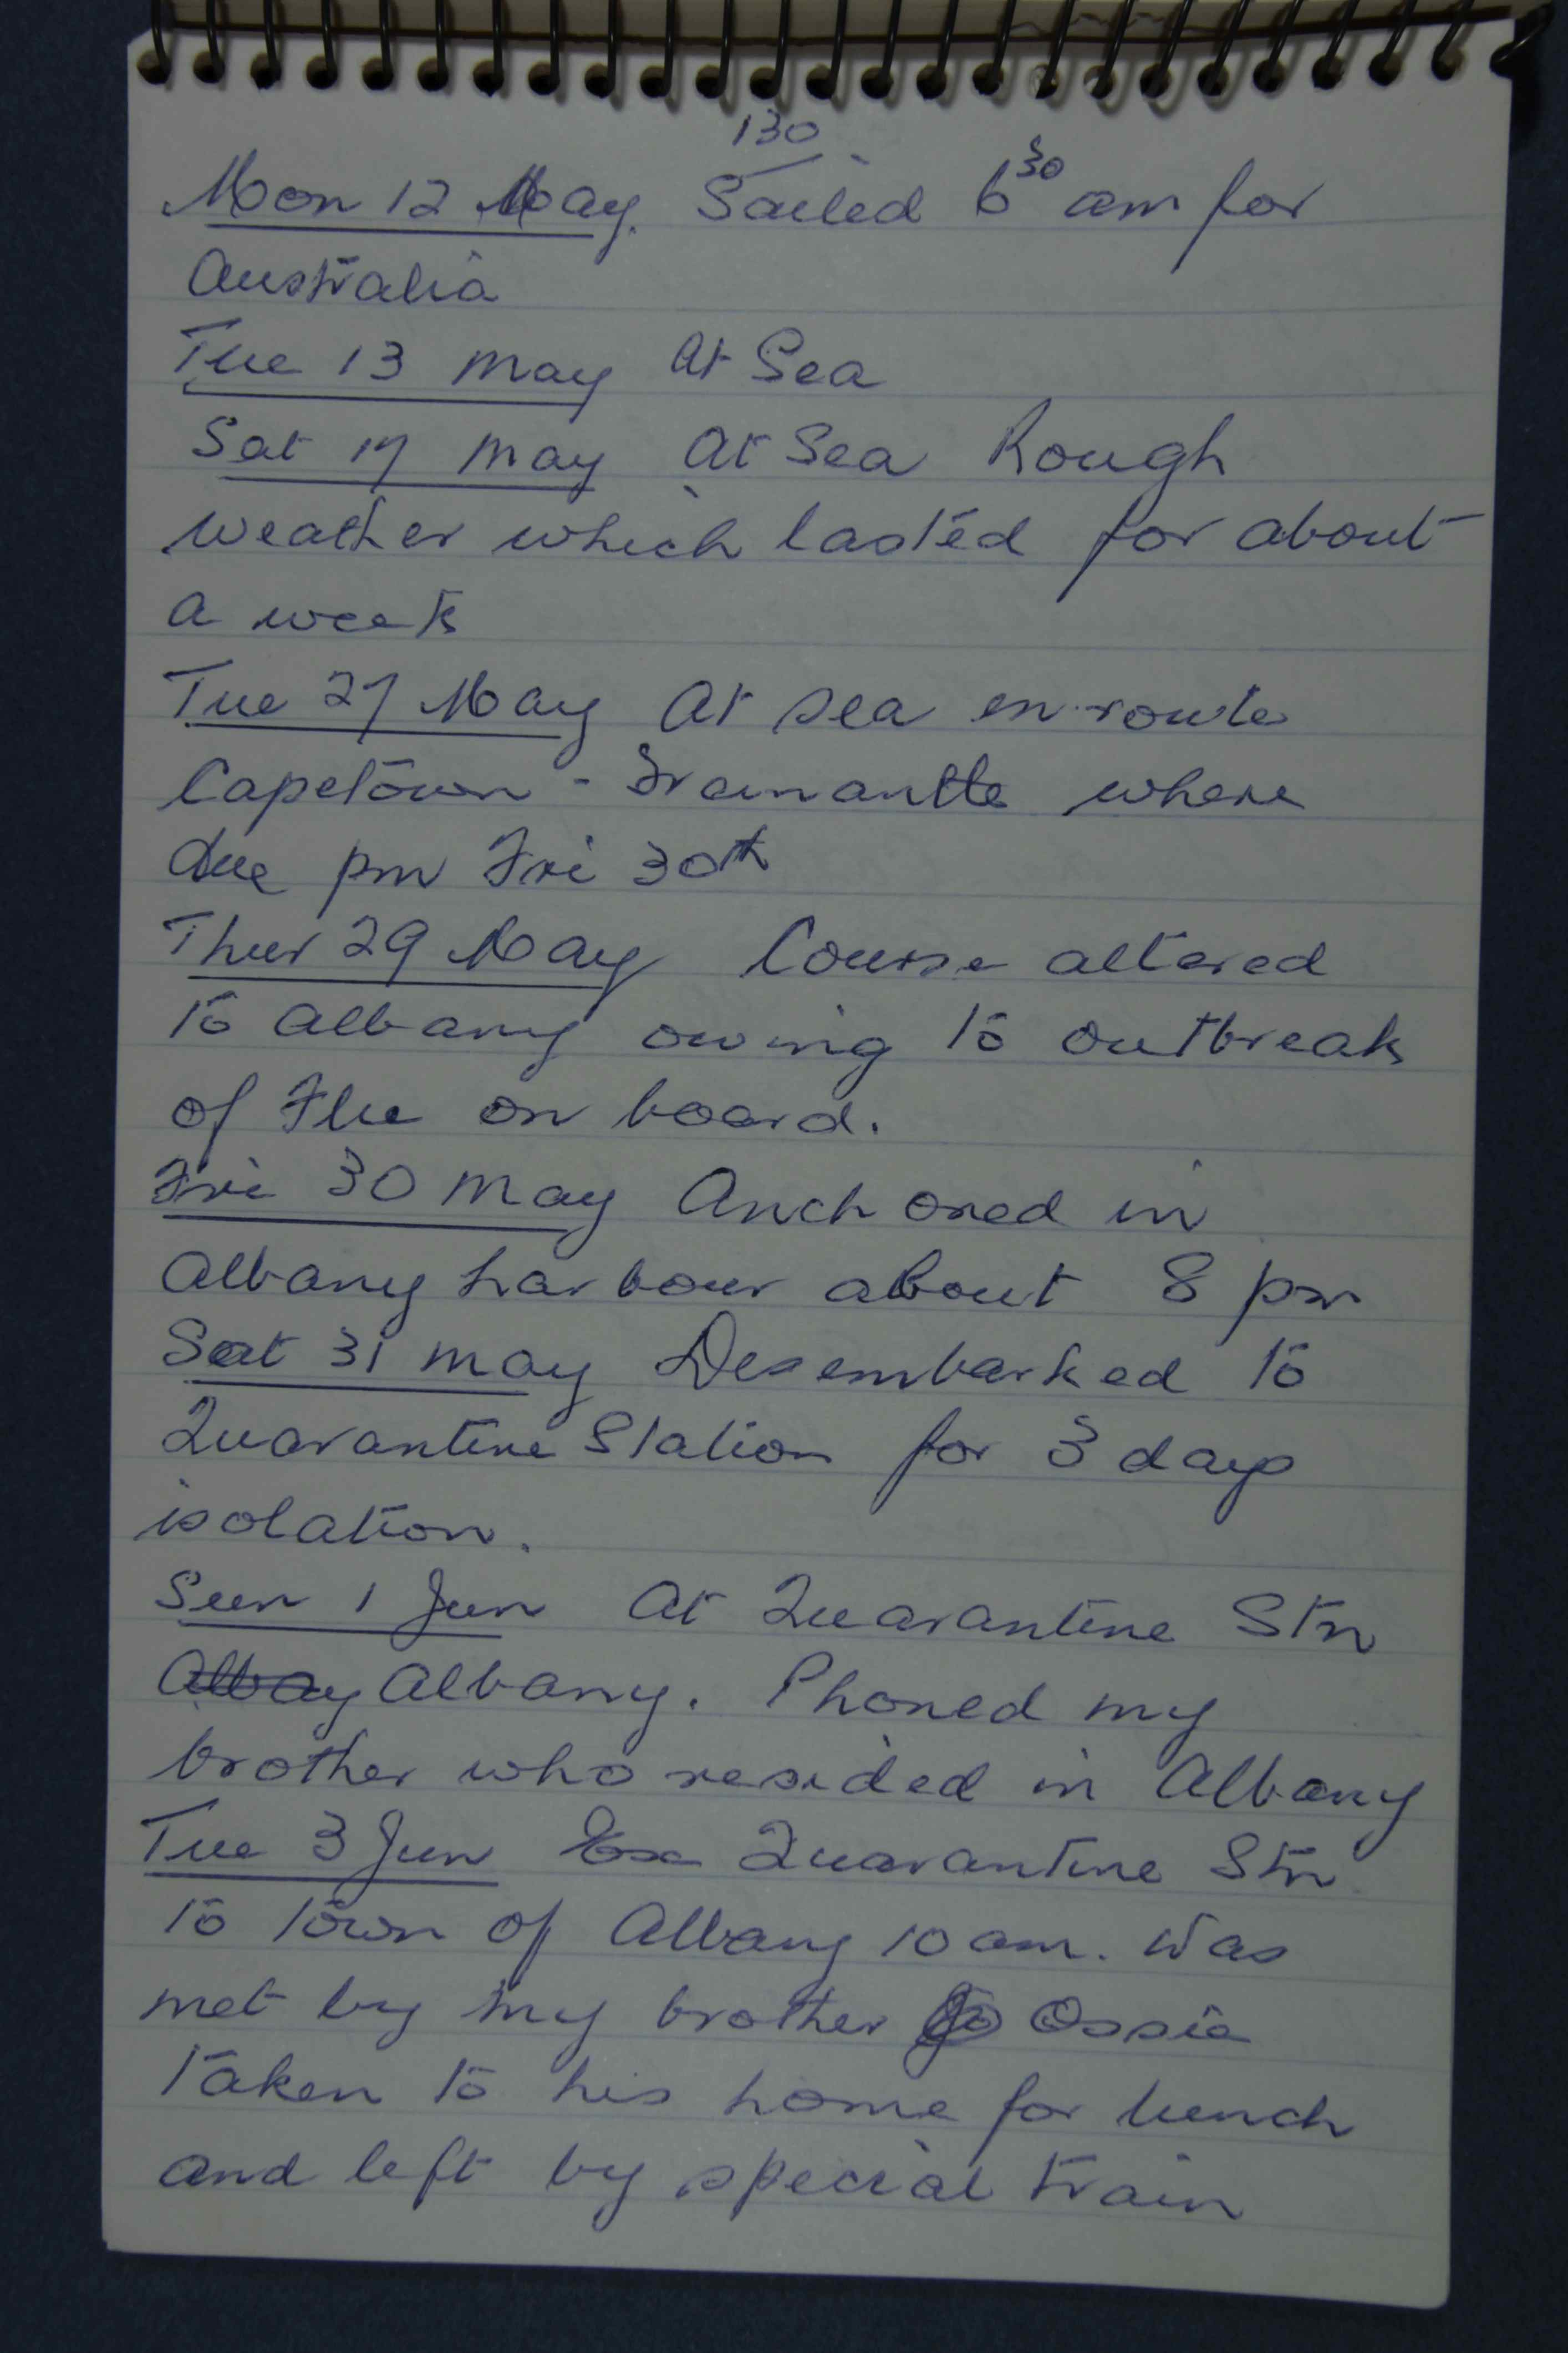 130
Mon 12 May. Sailed 6 30 am for
Australia
Tue 13 May At Sea
Sat 17 May At Sea Rough
weather which lasted for about
a week
Tue 27 May At sea en route
Capetown - Framantle where
due pm Fri 30th
Thur 29 May Course altered
to Albany owing to outbreak
of Flu on board.
Fri 30 May Anchored in
Albany harbour about 8 pm
Sat 31 May Desembarked to
Quarantine Station for 3 days
isolation.
Sun 1 Jun At Quarantine Stn
Albay Albany. Phoned my
brother who resided in Albany
Tue 3 Jun Ex Quarantine Stn
to town of Albany 10 am. Was
met by my brother Ossie
Taken to his home for lunch
and left by special train